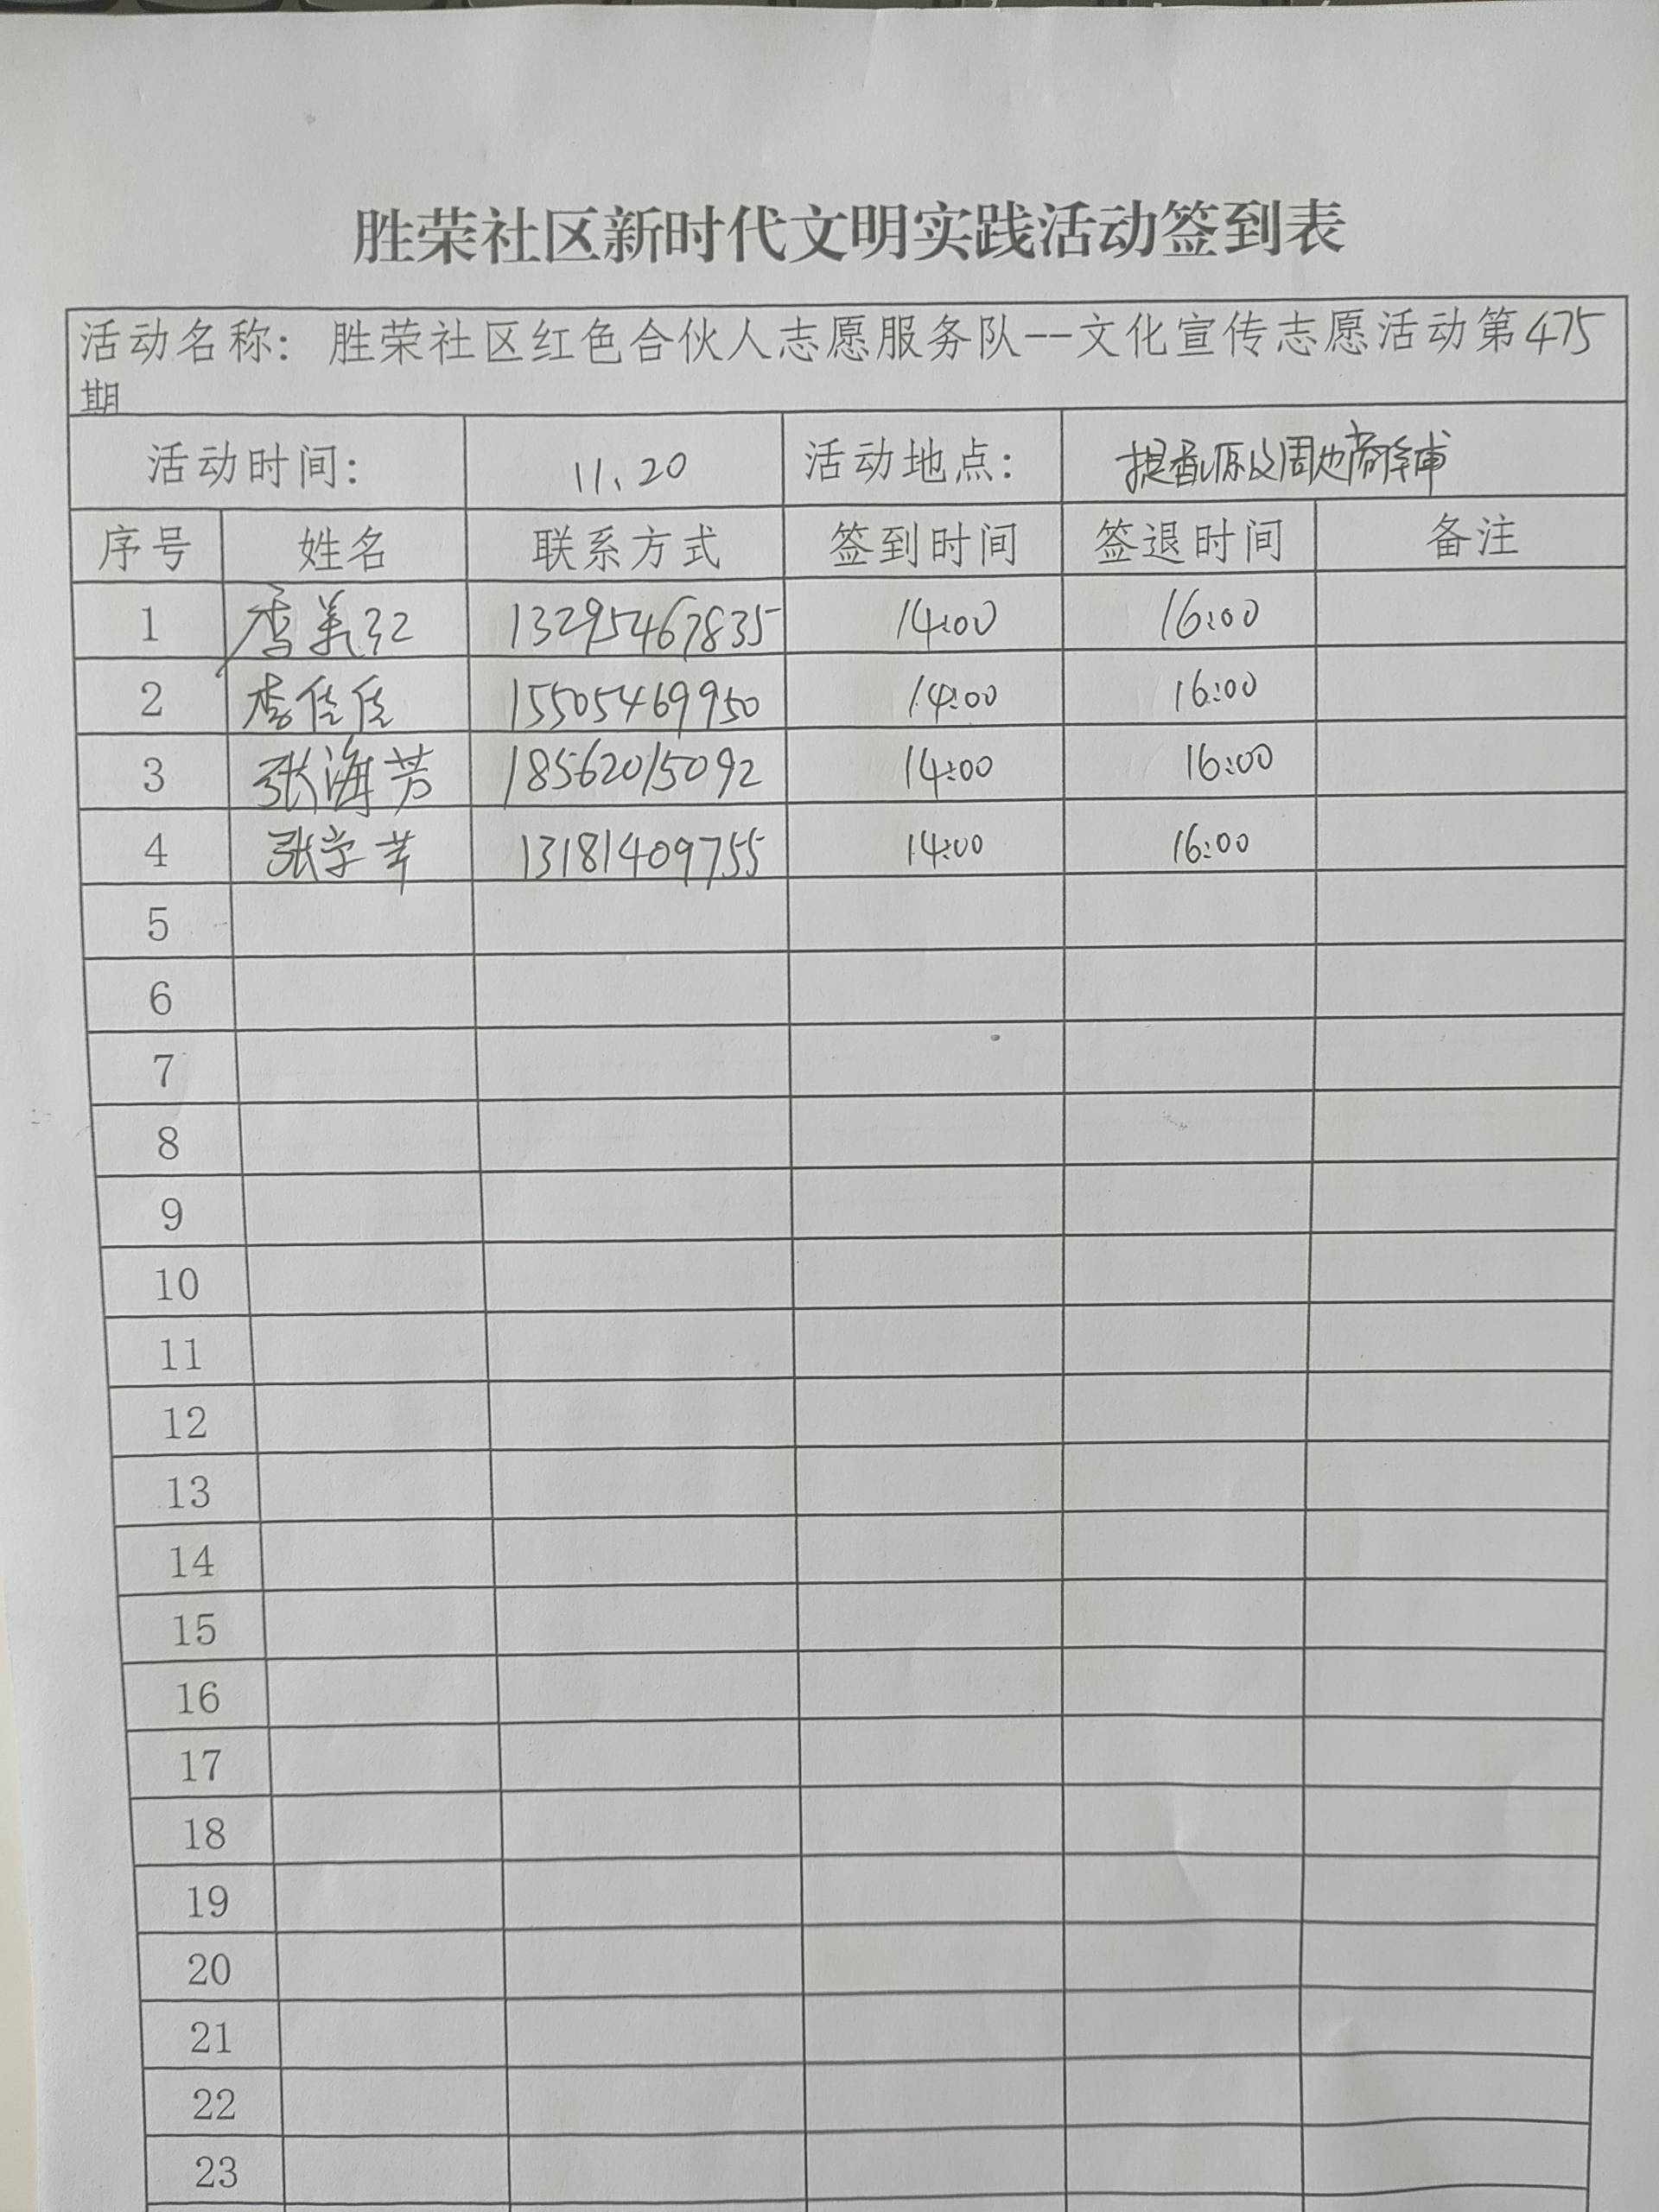 胜荣社区新时代文明实践活动签到表
活动名称：胜荣社区红色合伙人志愿服务队--文化宣传志愿活动第475
期
活动时间： 11、20 活动地点： 提香源及周边商铺
序号 姓名 联系方式 签到时间 签退时间 备注
1 李美红 13295467835 14:00 16:00
2 李佳佳 15505469950 14:00 16:00
3 张海芳 18562015092 14:00 16:00
4 张学 13181409755 14:00 16:00
5
6
7
8
9
10
11
12
13
14
15
16
17
18
19
20
21
22
23